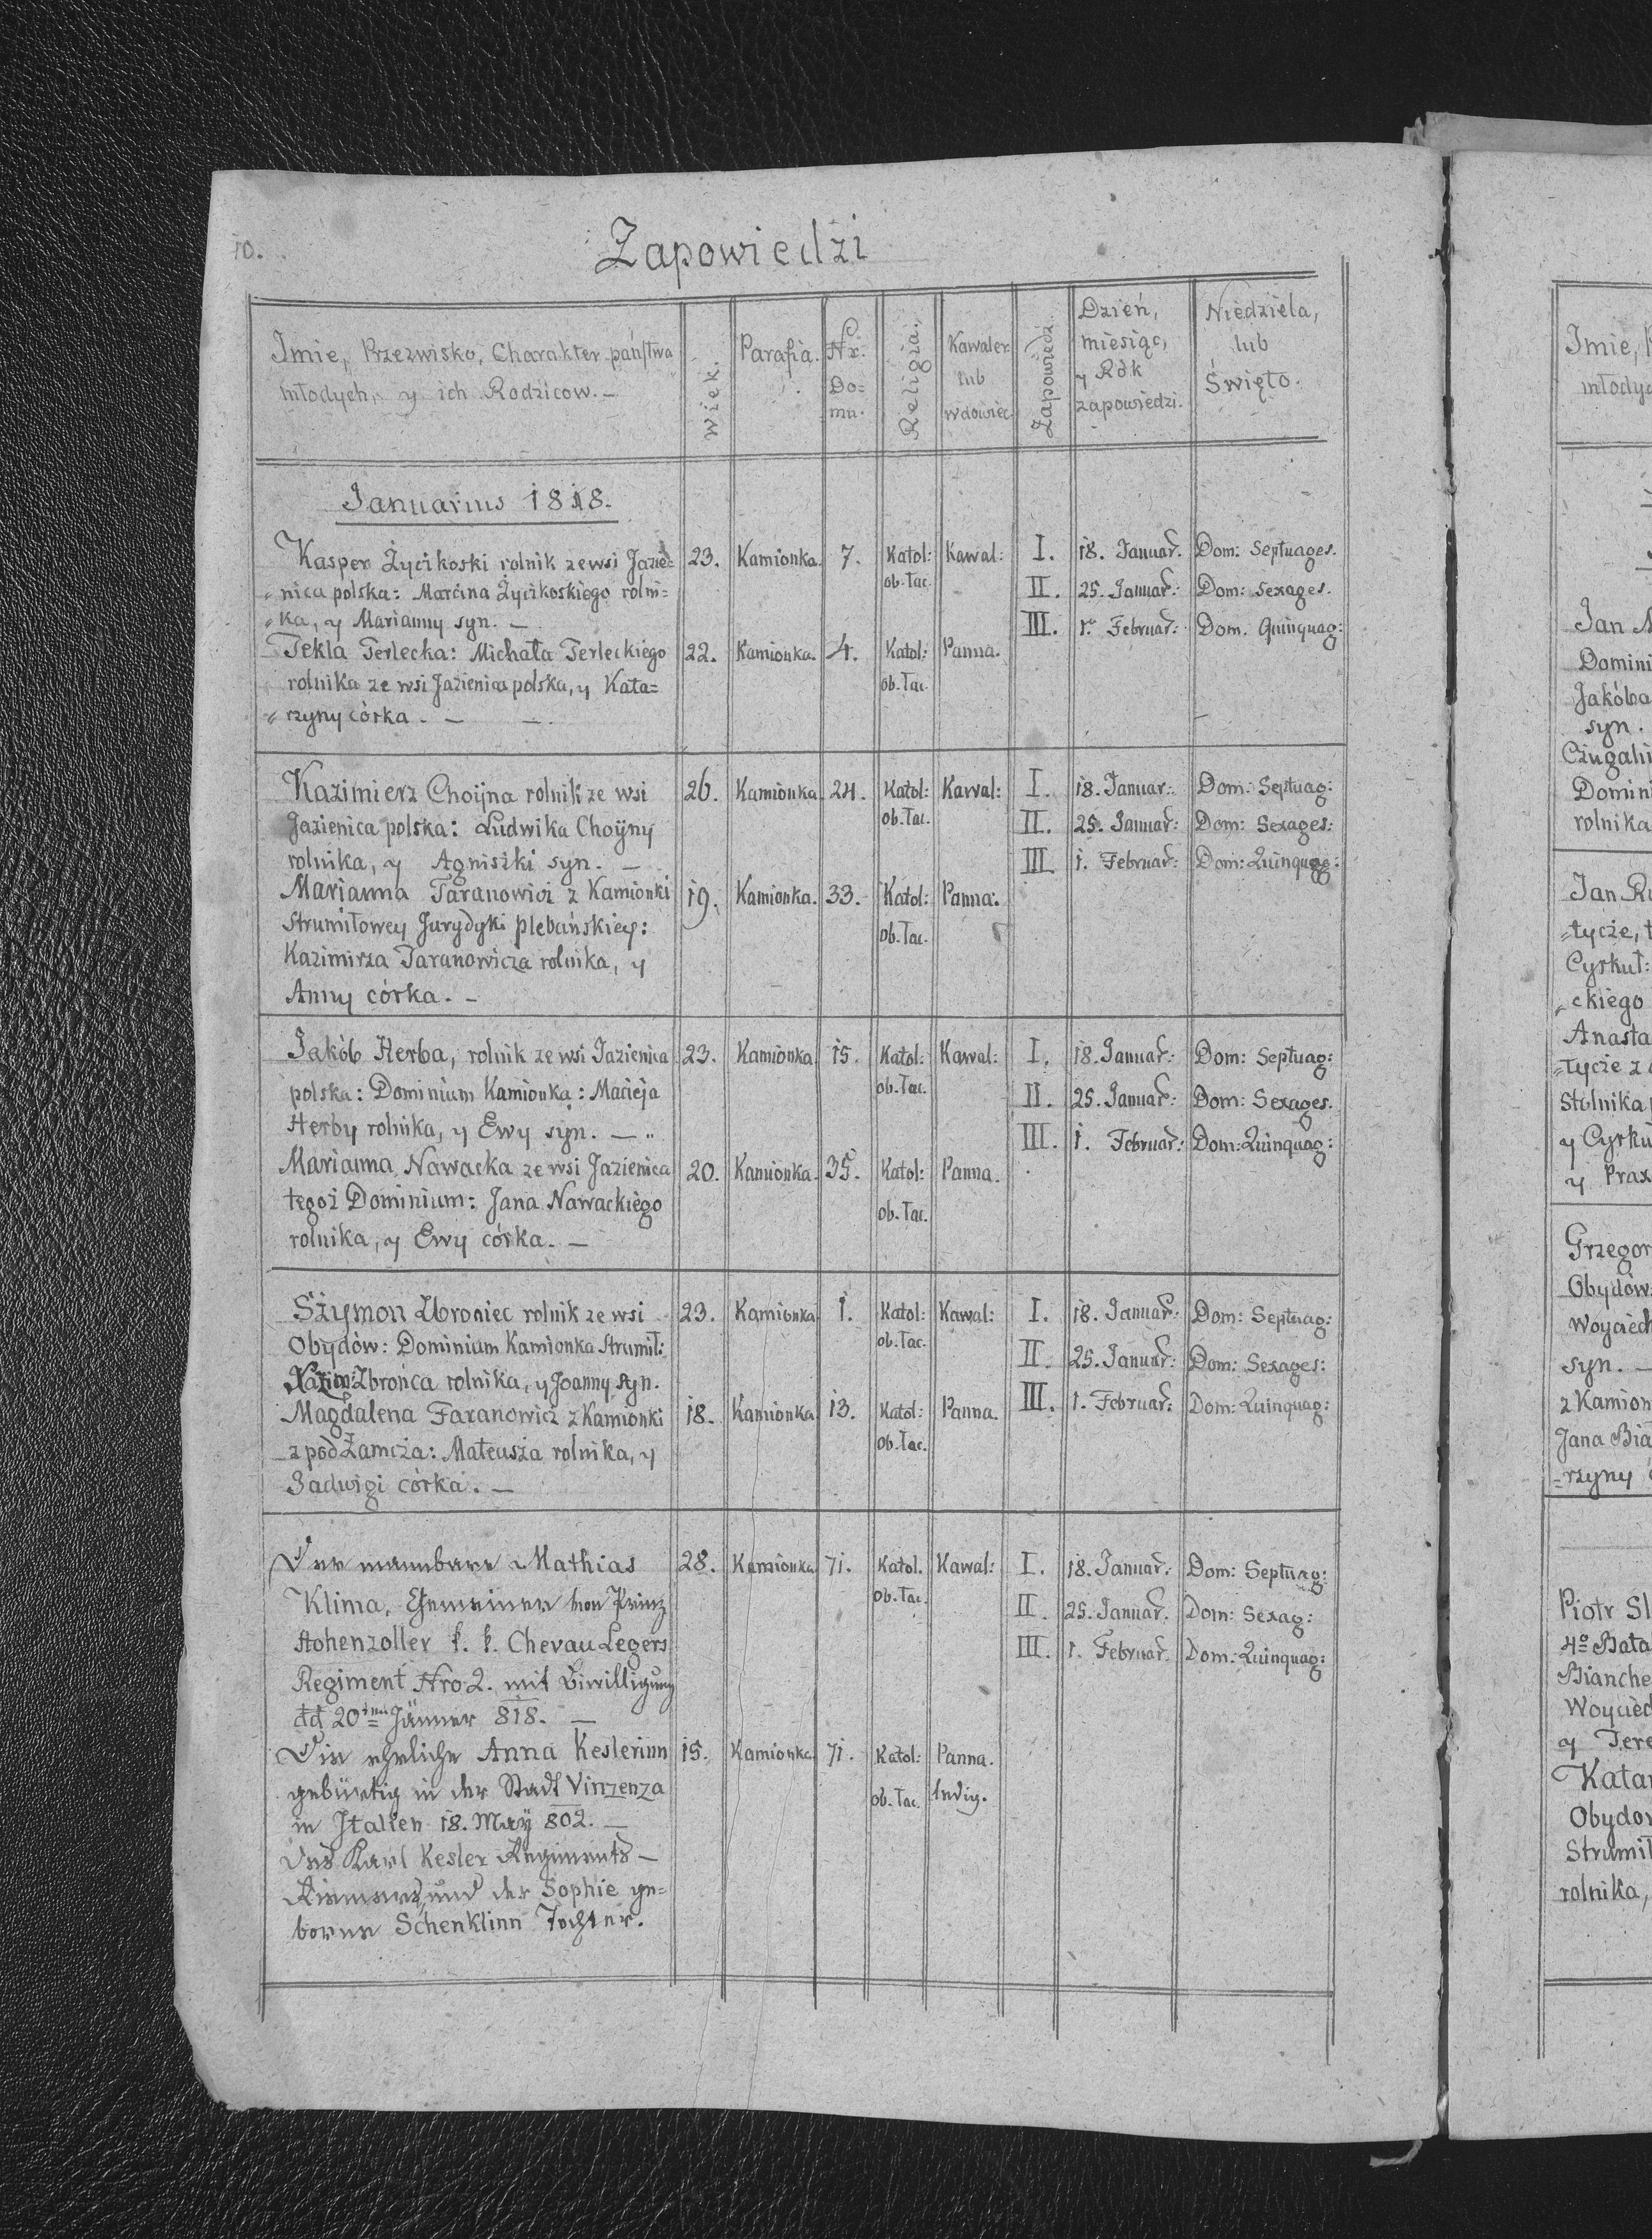 10.
Zapowiedzi
Imie, Przezwisko, Charakter państwa
młodych, y ich Rodzicow. —
Wiek.
Parafia.
Nr:
Do=
mu.
Religia.
Kawaler
lub
wdowiec
Zapowiedz.
Dzień,
miesiąc,
y Rók
zapowiedzi.
Niedziela,
lub
Święto.
Januarius 1818.
Kasper Życikoski rolnik ze wsi Jazie= 23. Kamionka. 7. Katol: Kawal: I. 18. Januar. Dom: Septuages.
nica polska: Marcina Życikoskiego rolni= ob. łac. II. 25. Januar: Dom: Sexages.
ka, y Marianny syn. — III. 1. Februar: Dom. Quinquag:
Tekla Terlecka: Michała Terleckiego 22. Kamionka. 4. Katol: Panna.
rolnika ze wsi Jazienica polska, y Kata= ob. łac.
rzyny córka. — —
Kazimierz Choijna rolnik ze wsi 26. Kamionka 24. Katol: Kawal: I. 18. Januar: Dom: Septuag:
Jazienica polska: Ludwika Choijny ob. łac. II. 25. Januar: Dom: Sexages:
rolnika, y Agniszki syn. — III. 1. Februar: Dom: Quinquag:
Marianna Taranowicz z Kamionki 19. Kamionka. 33. Katol: Panna.
Strumiłowey Jurydyki plebańskiey: ob. łac.
Kazimirza Taranowicza rolnika, y
Anny córka. —
Jakób Herba, rolnik ze wsi Jazienica 23. Kamionka 15. Katol: Kawal: I. 18. Januar: Dom: Septuag:
polska: Dominium Kamionka: Macieja ob. łac. II. 25. Januar: Dom: Sexages.
Herby rolnika, y Ewy syn. — III. 1. Februar: Dom: Quinquag:
Marianna Nawacka ze wsi Jazienica 20. Kamionka. 35. Katol: Panna.
tegoż Dominium: Jana Nawackiego ob. łac.
rolnika, y Ewy córka. —
Szymon Zbroniec rolnik ze wsi 23. Kamionka 1. Katol: Kawal: I. 18. Januar: Dom: Septuag:
Obydów: Dominium Kamionka Strumił: ob. łac. II. 25. Januar: Dom: Sexages:
Kazim: Zbrońca rolnika, y Joanny syn. III. 1. Februar: Dom: Quinquag:
Magdalena Faranowicz z Kamionki 18. Kamionka 13. Katol: Panna.
z pod Zamcza: Mateusza rolnika, y ob. łac.
Jadwigi córka. —
Der mannbare Mathias 28. Kamionka 71. Katol. Kawal: I. 18. Januar: Dom: Septuag:
Klima, Gemeiner von Prinz ob. łac. II. 25. Januar. Dom: Sexag:
Hohenzoller k. k. Chevau Legers III. 1. Februar. Dom: Quinquag:
Regiment Nro 2. mit Biwilligung
dd 20ten Jänner 818. —
Die eheliche Anna Keslerinn 15. Kamionka 71. Katol: Panna.
gebürtig in der Stadt Vinzenza ob. łac. ledig.
in Italien 18. May 802. —
Des Karl Kesler Regiments —
Riemers, und der Sophie ge=
borne Schenklinn Tochter.
Imie,
młodyc
Jan
Domini
Jakóba
syn.
Czugali
Domin
rolnika
Jan Ru
=tycze,
Cyrkuł:
ckiego
Anasta
=tycze z
Stolnika
y Cyrku
y Prax
Grzegor
Obydów
Woyciech
syn. —
z Kamion
Jana Bia
=rzyny
Piotr Sl
4º Bata
Bianche
Woyciec
y Tere
Katar
Obydow
Strumił
rolnika,